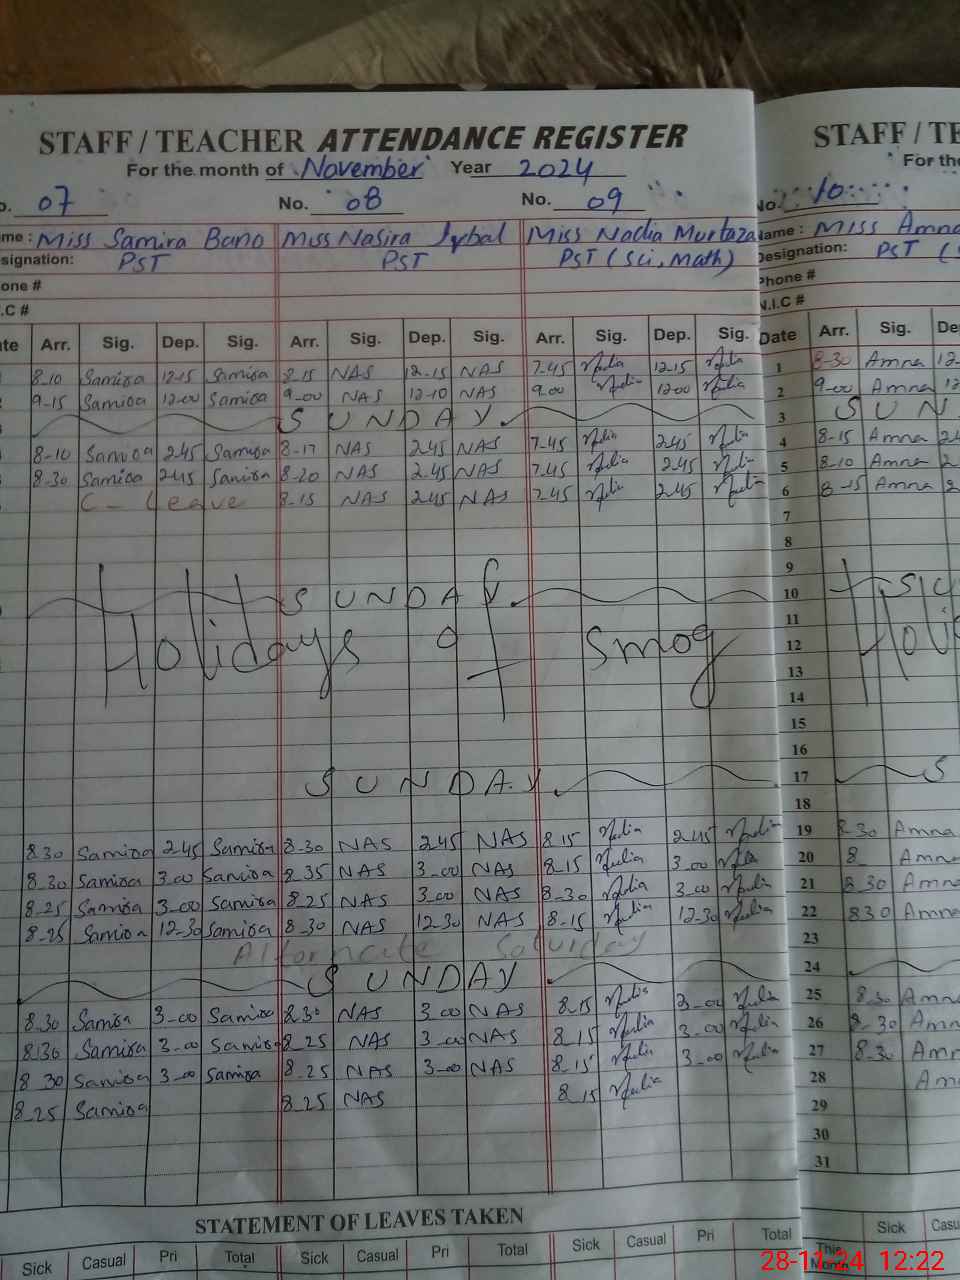 STAFF / TEACHER ATTENDANCE REGISTER
For the month of November Year 2024
07 No. 08 No. 09
Miss Samira Bano Miss Nasira Iqbal Miss Nadia Murtaza
signation: PST PST PST (Sci, Math)
one #
.C #
Arr. Sig. Dep. Sig. Arr. Sig. Dep. Sig. Arr. Sig. Dep. Sig.
8-10 Samira 12-15 Samira 8-15 NAS 12-15 NAS 7-45 12-15
9-15 Samira 12-00 Samira 9-00 NAS 12-10 NAS 9.00 12.00
SUNDAY
8-10 Samira 2.45 Samira 8-17 NAS 2.45 NAS 7-45 2.45
8.30 Samira 2.45 Samira 8-20 NAS 2.45 NAS 7.45 2.45
C- Leave 8-15 NAS 2.45 NAS 7.45 2.45
SUNDAY
Holidays of Smog
SUNDAY
8.30 Samira 2.45 Samira 8-30 NAS 2.45 NAS 8.15 2.45
8.30 Samira 3.00 Samira 8.35 NAS 3.00 NAS 8-15 3.00
8.25 Samira 3-00 Samira 8.25 NAS 3.00 NAS 8-30 3.00
8-25 Samira 12-30 Samira 8-30 NAS 12.30 NAS 8-15 12-30
Alternate Saturday
SUNDAY
8.30 Samira 3-00 Samira 8.30 NAS 3.00 NAS 8.15 3-00
8.30 Samira 3-00 Samira 8-25 NAS 3.00 NAS 8.15 3-00
8.30 Samira 3-00 Samira 8.25 NAS 3-00 NAS 8.15 3-00
8.25 Samira 8.25 NAS 8.15
STATEMENT OF LEAVES TAKEN
Sick Casual Pri Total Sick Casual Pri Total Sick Casual Pri Total
STAFF / TE
For the
No. 10
Name: Miss Amna
Designation: PST (S
Phone #
N.I.C #
Date Arr. Sig. De
1 8-30 Amna 12-
2 9-00 Amna 12
3 SUN
4 8-15 Amna 2.4
5 8-10 Amna 2
6 8-15 Amna 2
7
8
9
10 SU
11
12 Holi
13
14
15
16
17 S
18
19 8-30 Amna
20 8 Amna
21 8.30 Amna
22 8.30 Amna
23
24
25 8.30 Amna
26 8-30 Amna
27 8-30 Amn
28 Am
29
30
31
Sick Casu
This Month
28-11-24 12:22